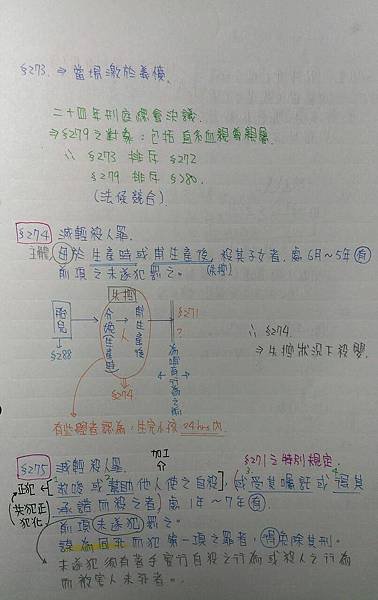 §273. ⇒ 當場激於義憤.
二十四年刑庭總會決議
⇒ §279之對象:包括直系血親尊親屬
∴ §273 排斥 §272
§279 排斥 §280.
(法條競合)
§274 減輕殺人罪.
主體 母於生產時或甫生產後,殺其子女者,處6月~5年有
前項之未遂犯罰之。 (失控)
失控
胎兒
分娩(生產)時
甫生產後
§271
§288
人
§274
?
∴ §274
⇒ 失控狀況下殺嬰
有些學者認為:生完小孩24hrs內.
加工
§271之特別規定.
§275 減輕殺人罪.
正犯 教唆或幫助他人使之自殺,或受其囑託或得其
(共犯正犯化) 承諾而殺之者,處1年~7年有.
前項未遂犯罰之。
謀為同死而犯第一項之罪者,得免除其刑.
未遂犯須有著手實行自殺之行為或殺人之行為
而被害人未死者..